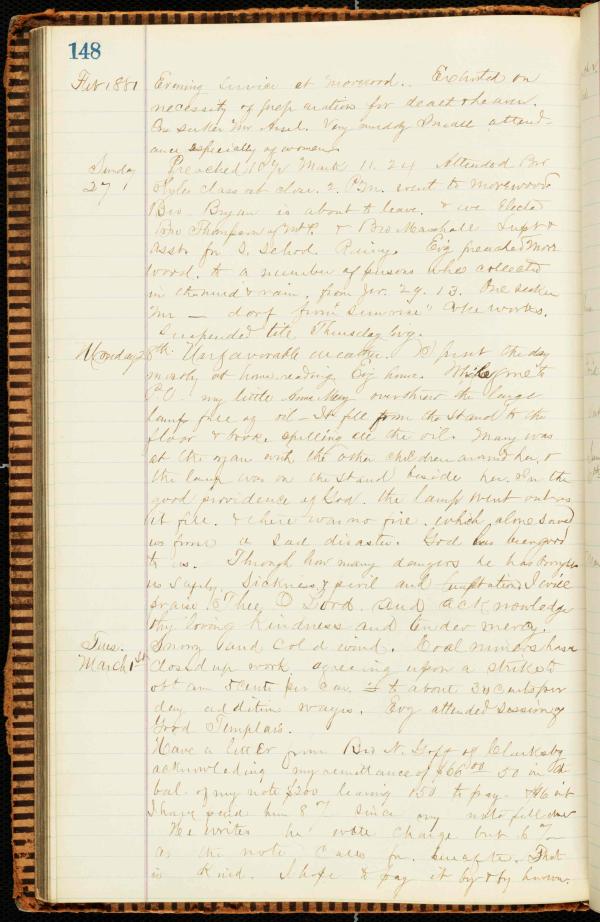 148
Feb 1881 Evening Service at Morewood. Exhorted on
necessity of preparation for death & heaven.
One seeker Mr. Ansel. Very muddy Small attend-
ance especially of women.
Sunday Preached 10½ Mark 11. 24 Attended Bro
27 class at close. 2. P.m. went to Morewood
Bro. Bryan is about to leave. & we Elected
Bro Thompson of Mt P. & Bro Marshall Supt &
Asst. for S. School. Rainy. Evg preached More
wood. to a number of persons who collected
in the mud & rain, from Jer. 29. 13. One seeker
Mr — dorf from "Sunrise" Coke works.
Suspended till Thursday Evg.
Monday 28th. Unfavorable weather. I spent the day
mostly at home reading Evg home. While gone to
P.O. my little Mary overthrew the large
lamp full of oil It fell from the Stand to the
floor & broke, spilling all the oil. Mary was
at the organ with the other children around her, &
the lamp was on the stand beside her. In the
good providence of God. the lamp went out as
it fell. & there was no fire. which alone saved
us from a sad disaster. God has been good
to us. Through how many dangers he has brought
us safely. Sickness, & peril and temptation I will
praise Thee O Lord. and acknowledge
thy loving kindness and tender mercy.
Tues. Snowy and cold wind. Coal miners have
March 1st closed up work agreeing upon a strike to
obtain 5 cents per car. to about 30 cents per
day addition wages. Evg attended Session of
Good Templars.
Have a letter from Bro N. Goff of Clarksbg
acknowledging my remittance of $66 00 50 in
bal. of my note $200 leaving 150 to pay. $16 int
I have paid him 8 % since my note fell due
He writes he wont charge but 6 %
as the note calls for. That
is kind. I hope to pay it by & by